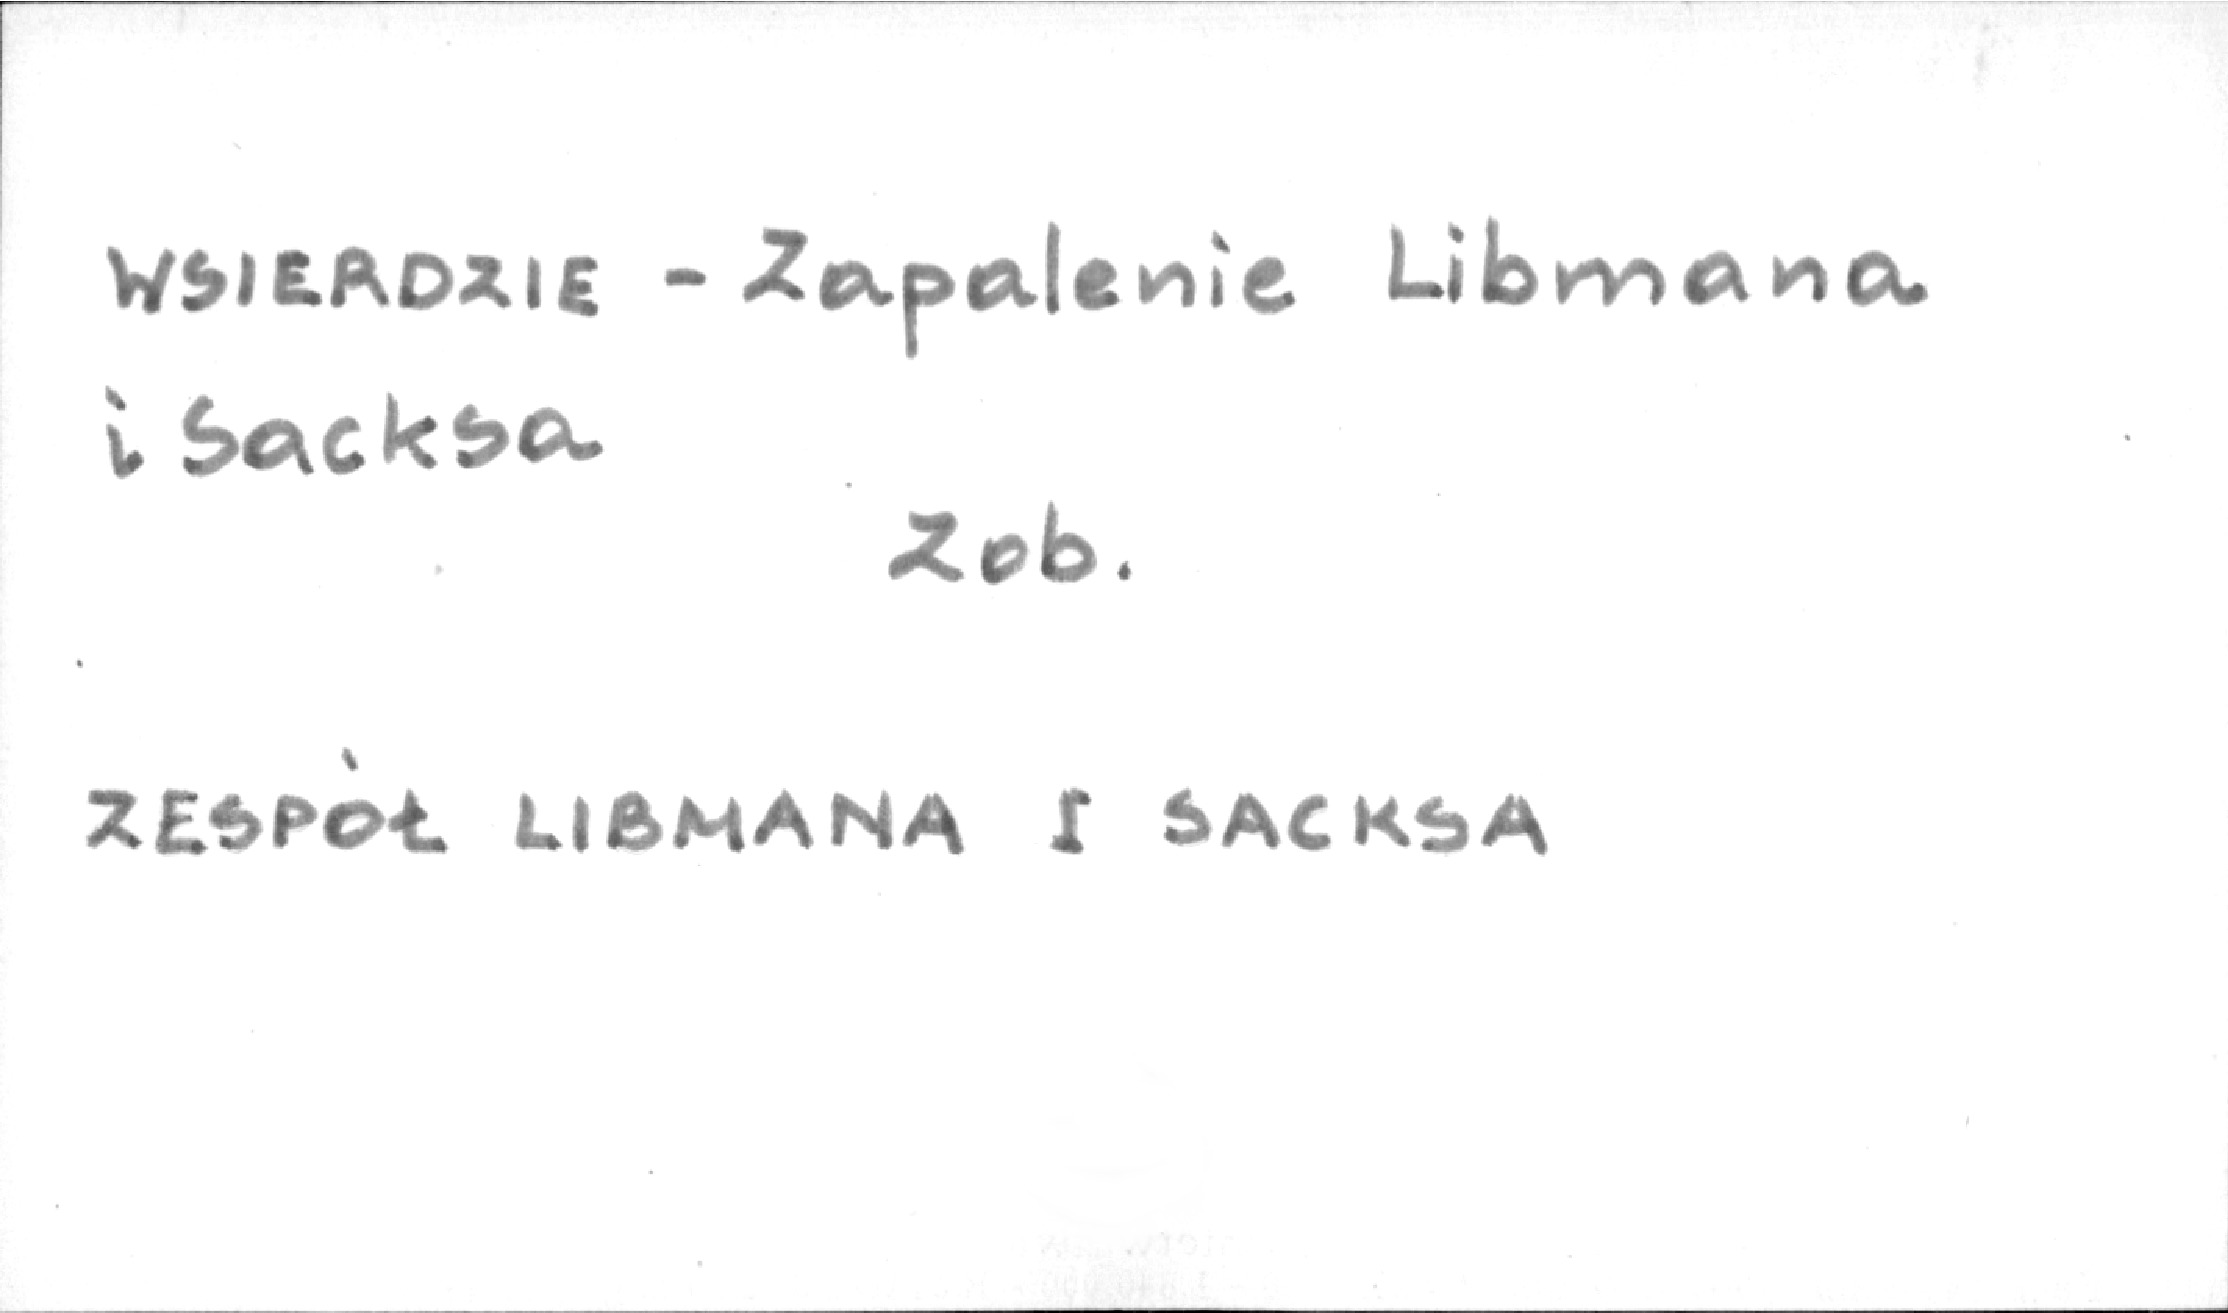 WSIERDZIE - Zapalenie Libmana
i Sacksa
Zob.
ZESPÓŁ LIBMANA I SACKSA